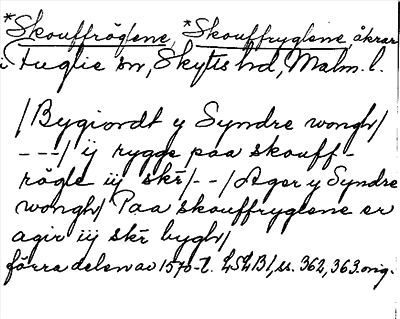 *Skouffröglene, *Skouffryglene, åkrar
i Fuglie sn, Skytts hd, Malm. l.
/Bygiordt y Syndre wongh/
---/ ij rygge paa skouff-
rögle iij skr̄/--/Ager y Syndre
wongh/ Paa skouffryglene er
agir iij skr̄ bygh/
förra delen av 1570-t. LSLB1, ss. 362, 363. orig.